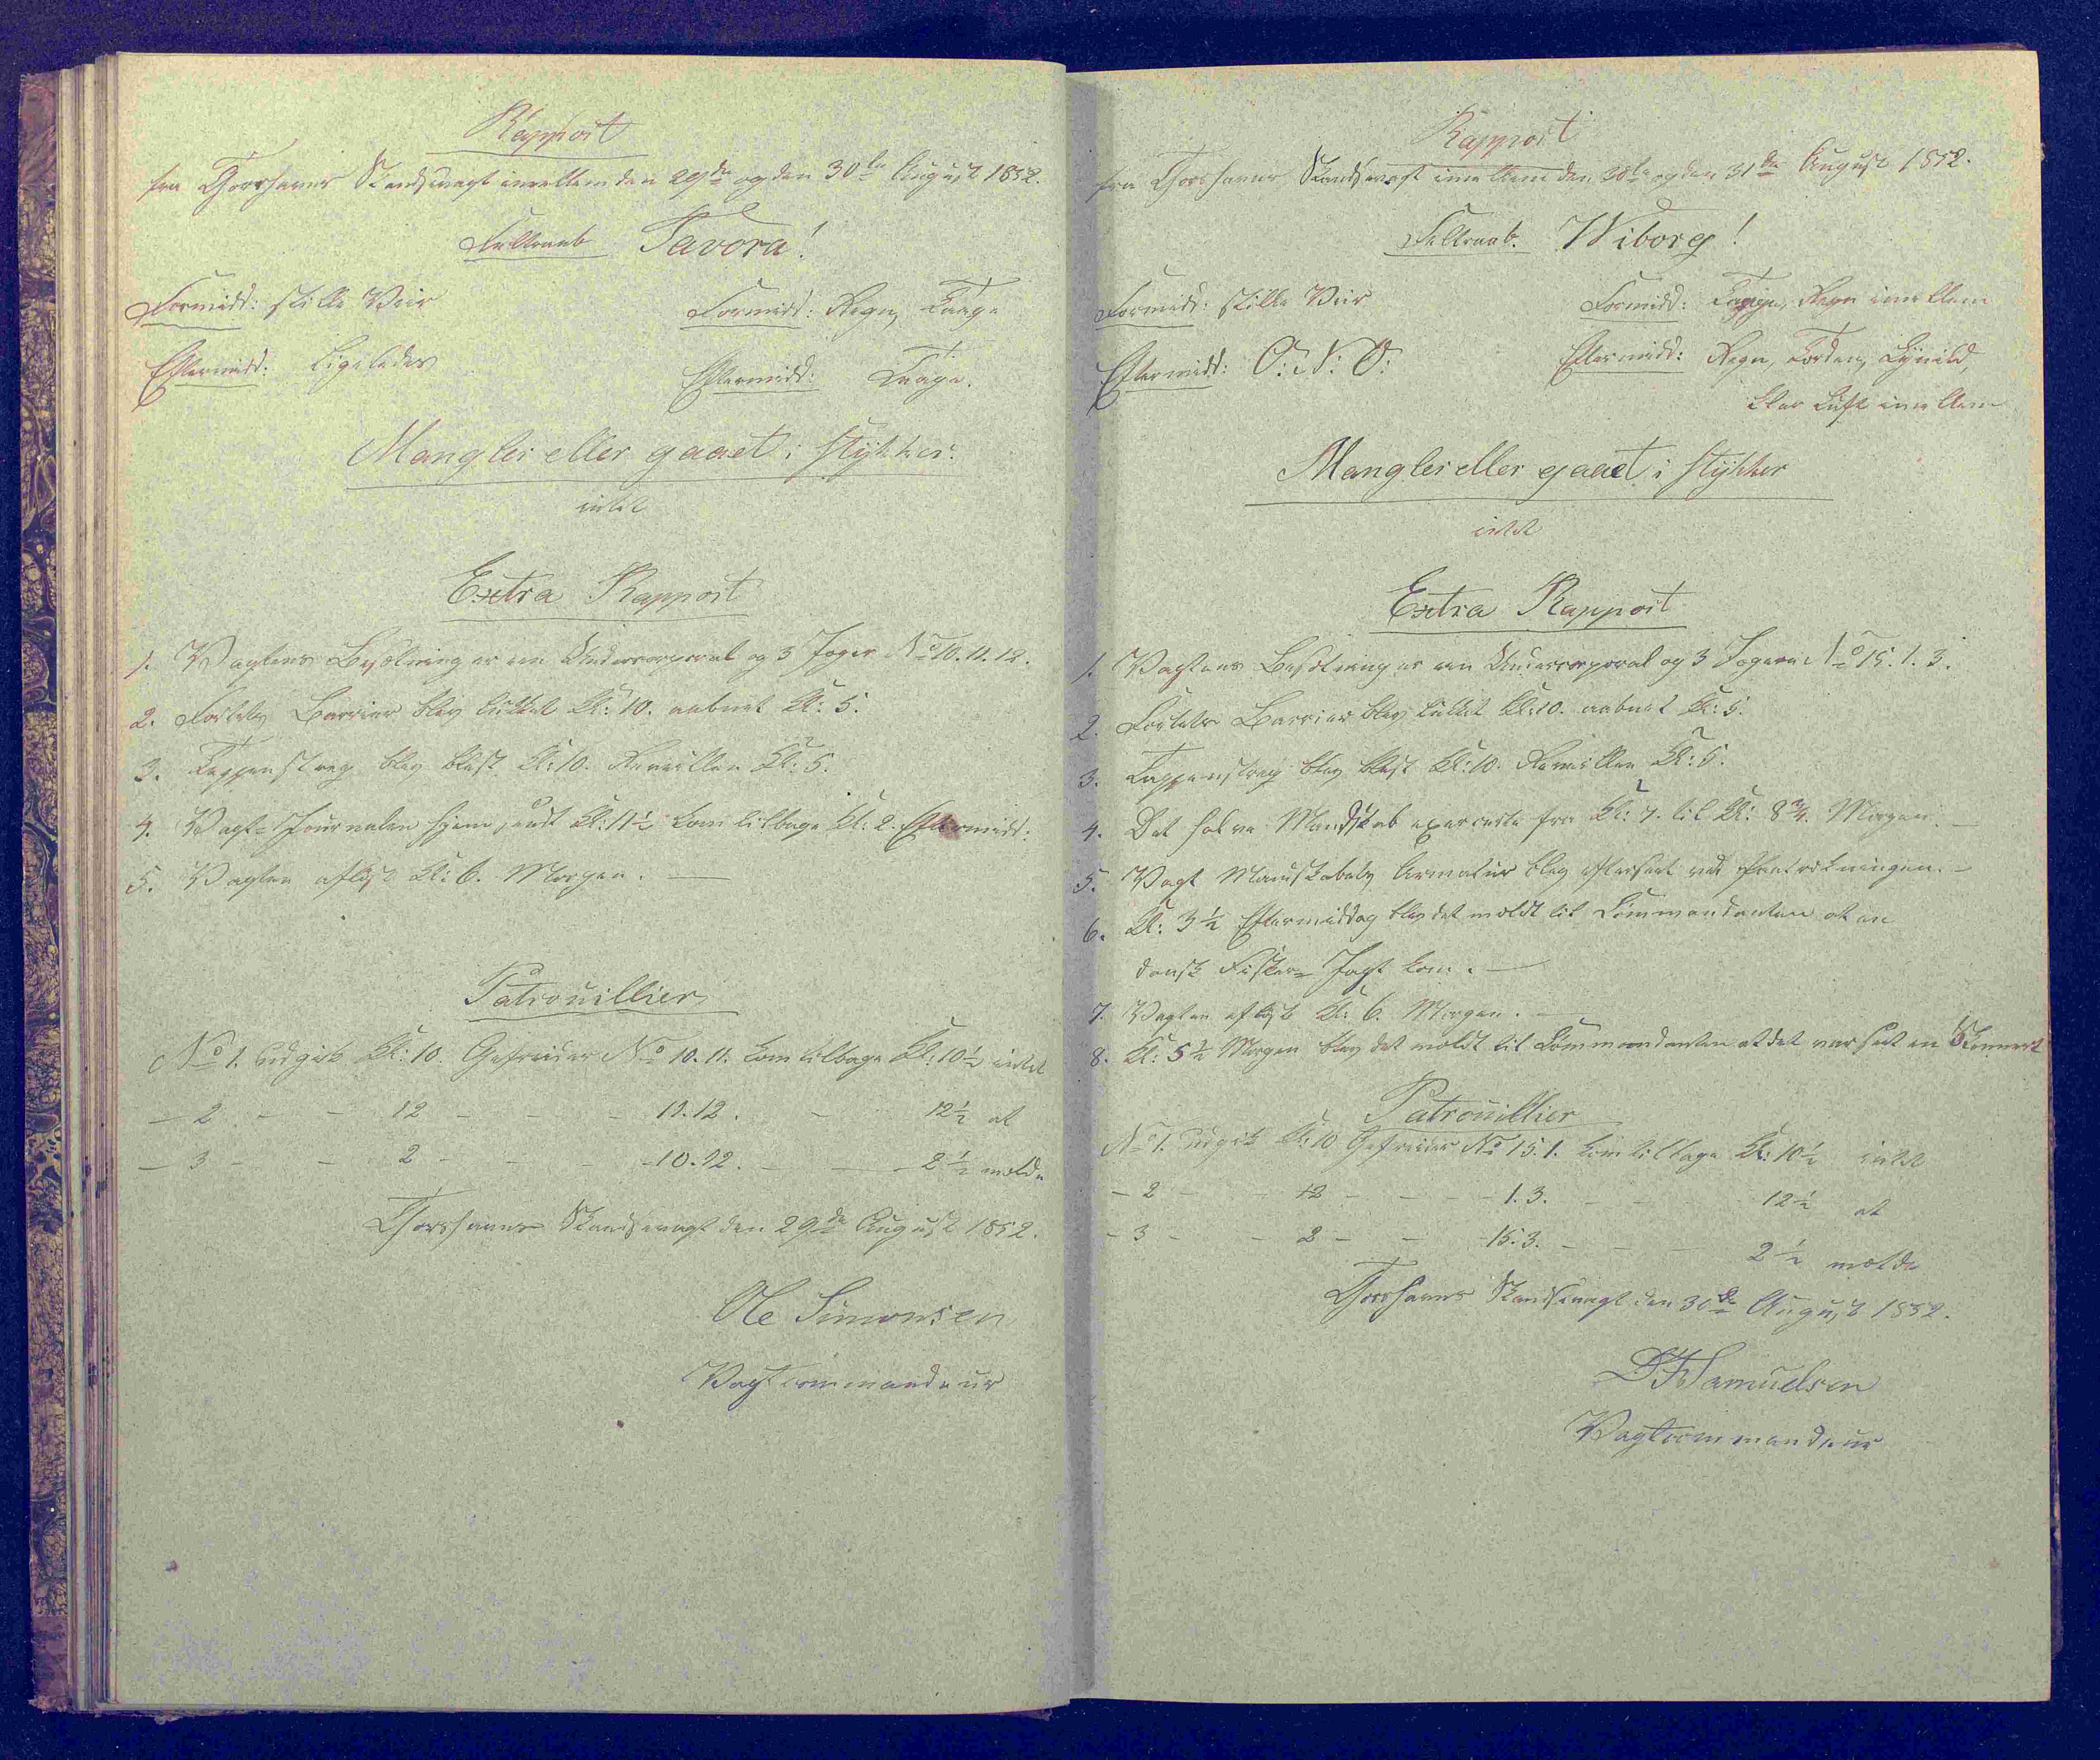 Rapport
fra Thorshavns Skandsevagt imellem den 29de og den 30te August 1852.
Feltraab Tavora!
Formidd: stille Veir
Formidd: Regn, Taage
Eftermidd: ligeledes
Eftermidd: Taage.
Mangler eller gaaet i stykker.
intet
Extra Rapport
1. Vagtens Besætning er een Undercorporal og 3 Jæger No 10. 11. 12.
2. Fortets Barrier blev lukket Kl: 10. aabnet Kl: 5.
3. Tappenstreg blev blæst Kl: 10. Reveillen Kl: 5.
4. Vagt=Journalen hjemsendt Kl: 11½ kom tilbage Kl: 2. Eftermidd:
5. Vagten afløst Kl: 6. Morgen. —
Patrouillier
No 1. udgik Kl: 10. Gefreider No 10. 11. kom tilbage Kl: 10½ intet
— 2 - - 12 - - - 11. 12. - 12½ at
— 3 - - 2 - - - 10. 12. - — 2½ melde
Thorshavns Skandsevagt den 29de August 1852.
Ole Simonsen
Vagtcommandeur
Rapport
fra Thorshavns Skandsevagt imellem den 30te og den 31te August 1852.
Feltraab. Wiborg!
Formidd: stille Veir
Formidd: Taage, Regn imellem
Eftermidd: O: N: O:
Eftermidd: Regn, Torden, Lynild,
klar Luft imellem
Mangler eller gaaet i stykker
intet
Extra Rapport
1. Vagtens Besætning er een Undercorporal og 3 Jægere No 15. 1. 3.
2. Fortets Barrier blev lukket Kl: 10. aabnet Kl: 5.
3. Tappenstreg blev blæst Kl: 10. Reveillen Kl: 5.
4. Det halve Mandskab exercerte fra Kl: 7. til Kl: 8¾. Morgen. —
5. Vagt Mandskabets Armatur blev efterseet ved Fratrædningen. —
6. Kl: 3½ Eftermiddag blev det meldt til Commandanten at en
dansk Fisker= Jagt kom. —
7. Vagten afløst Kl: 6. Morgen. —
8. Kl: 5½ Morgen blev det meldt til Commandanten at det var seet en Skonnert
Patrouillier
No 1. udgik Kl: 10 Gefreider No 15. 1. kom tilbage Kl: 10½ intet
- 2 - - 12 - - - - 1. 3. - - 12½ at
- 3 - - 2 - - - 15. 3. - - - 2½ melde
Thorshavns Skandsevagt den 30te August 1852.
Samuelsen
Vagtcommandeur